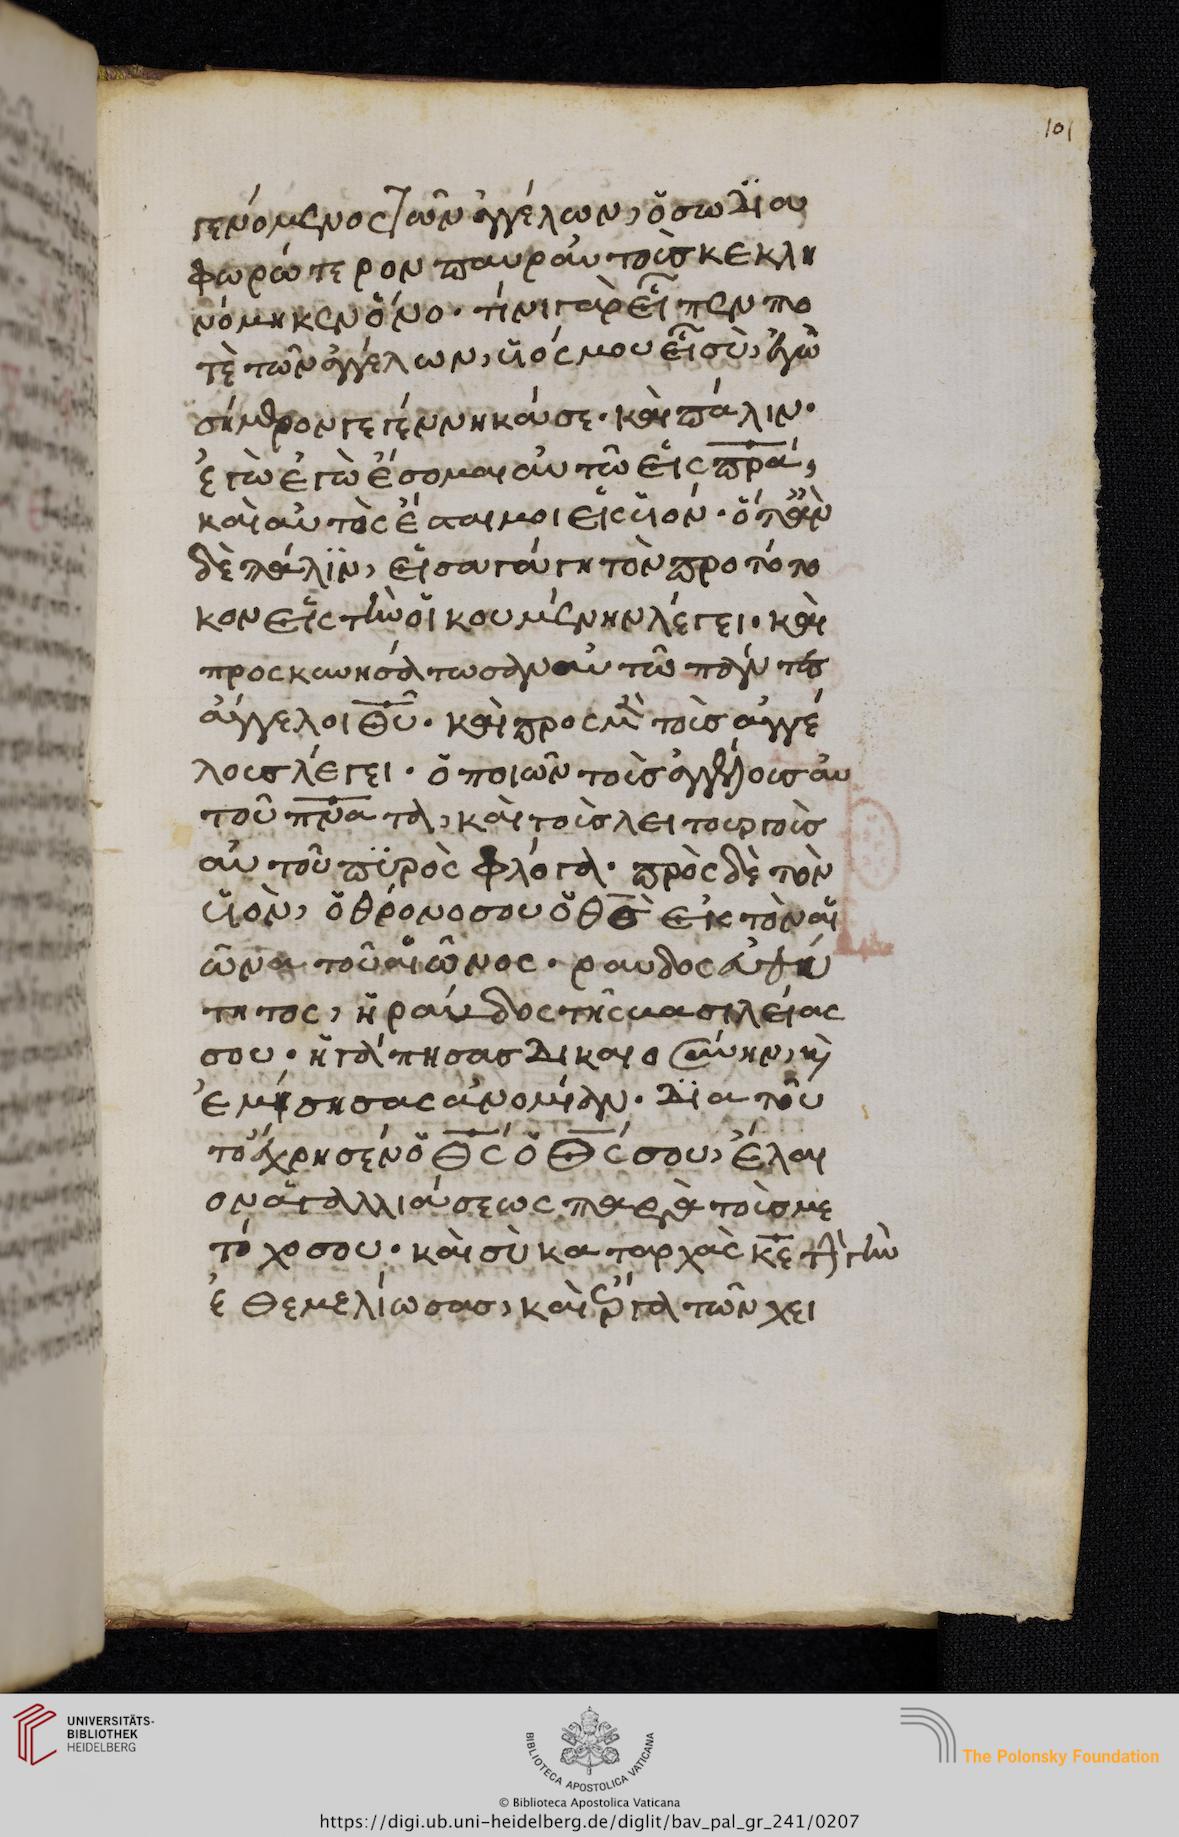 101
γενόμενος τῶν ἀγγέλων, ὅσω δια
φωρώτερον παυρ αὐτοῖς κεκλη
νόμηκεν ὄνο. τίνι γὰρ εἶπεν πο
τὲ τῶν ἀγγέλων, υἱός μου εἶ σὺ, ἐγὼ
σήμερον γεγέννηκά σε. καὶ πάλιν.
ἐγὼ ἐγὼ ἔσομαι αὐτῶ εἰς πρα,
καὶ αὐτὸς ἔσται μοι εἰς υἱόν. ὅταν
δὲ πάλϊν, εἰσαγάγη τὸν προτότο
κον εἰς τὴν οἰκουμένην λέγει. καὶ
προσκυνησάτωσαν αὐτῶ πάντες
ἄγγελοι θυ. καὶ προς μὲν τοῖς ἀγγέ
λοις λέγει. ὁ ποιῶν τοῖς ἀγγέλοις αὐ
τοῦ πνα τα, καὶ τοῖς λειτουργοῖς
αὐτοῦ πϋρὸς φλόγα. πρὸς δὲ τὸν
υἱὸν, ὁ θρόνο σου ὁ θς εἰς τὸν αἰ
ῶνα τοῦ αἰῶνος. ραυδος εὐθύ
τητος, ἡ ράυδος τῆς υασιλείας
σου. ἠγάπησας δικαιοσύνην, κὶ
ἐμίσησας ἀνομίαν. δϊα τοῦ
το ἔχρησέν ὁ θς ὁ θς σου, ἔλαι
ον ἀγαλλιάσεως παρὰ τοῖς με
τό χο σου. καὶ σὺ κα ταρχὰς κε τὴν γὴν
ἐθεμελίωσας, καὶ ἔργα τῶν χει
UNIVERSITÄTS-
BIBLIOTHEK
HEIDELBERG
BIBLIOTECA APOSTOLICA VATICANA
The Polonsky Foundation
© Biblioteca Apostolica Vaticana
https://digi.ub.uni-heidelberg.de/diglit/bav_pal_gr_241/0207